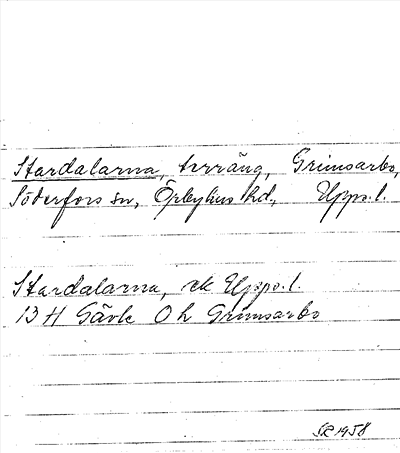 Stardalarna, terräng, Grimsarbo,
Söderfors sn, Örbyhus hd., Upps.l.
Stardalarna, ek Upps.l.
13 H Gävle 0 h Grimsarbo
SR 1958